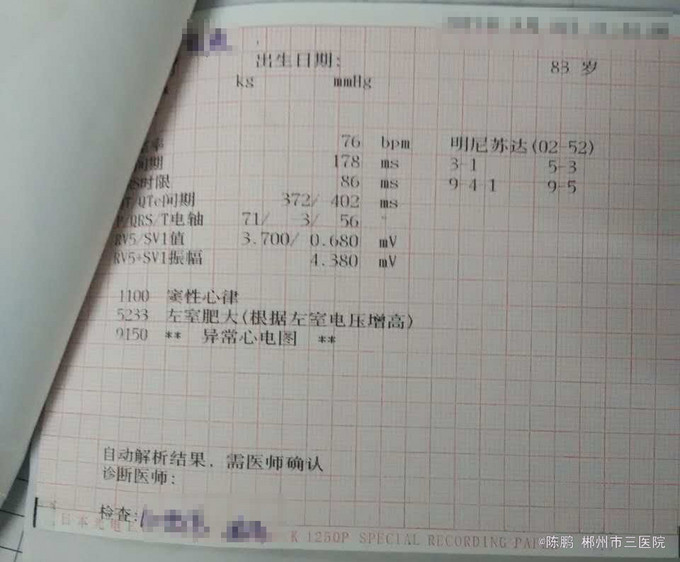 出生日期: 83 岁
kg mmHg
率 76 bpm 明尼苏达(02-52)
间期 178 ms 3-1 5-3
时限 86 ms 9-4-1 9-5
QT/QTc间期 372/ 402 ms
P/QRS/T电轴 71/ 3/ 56 °
RV5/SV1值 3.700/ 0.680 mV
RV5+SV1振幅 4.380 mV
1100 窦性心律
5233 左室肥大(根据左室电压增高)
9150 ** 异常心电图 **
自动解析结果, 需医师确认
诊断医师:
检查:
日本光电 K 1250P SPECIAL RECORDING PAP
©陈鹏 郴州市三医院